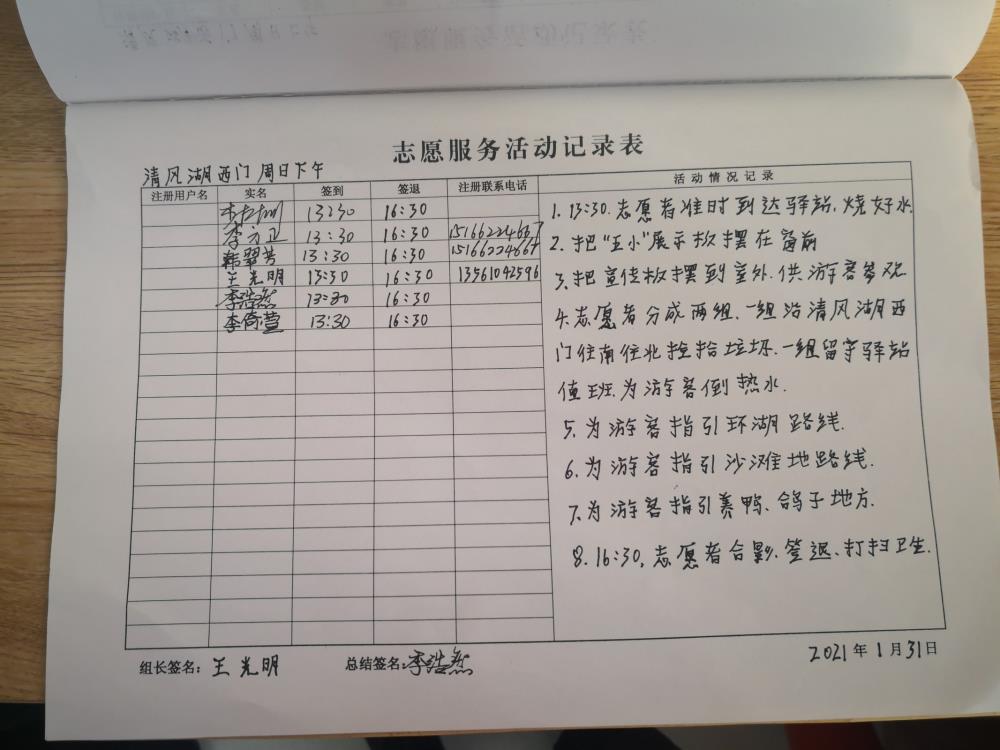 志愿服务活动记录表
清风湖西门周日下午
注册用户名 实名 签到 签退 注册联系电话 活动情况记录
13:30 16:30
李方正 13:30 16:30 15166224667
韩翠芳 13:30 16:30 15166224667
王光明 13:30 16:30 13561042596
李浩然 13:30 16:30
李倚萱 13:30 16:30
1. 13:30. 志愿者准时到达驿站. 烧好水.
2. 把“五小”展示板摆在窗前
3. 把宣传板摆到室外. 供游客参观
4. 志愿者分成两组. 一组沿清风湖西
门往南往北捡拾垃圾. 一组留守驿站
值班. 为游客倒热水.
5. 为游客指引环湖路线.
6. 为游客指引沙滩地路线.
7. 为游客指引养鸭、鸽子地方.
8. 16:30, 志愿者合影. 签退. 打扫卫生.
组长签名: 王光明 总结签名: 李浩然 2021年1月31日